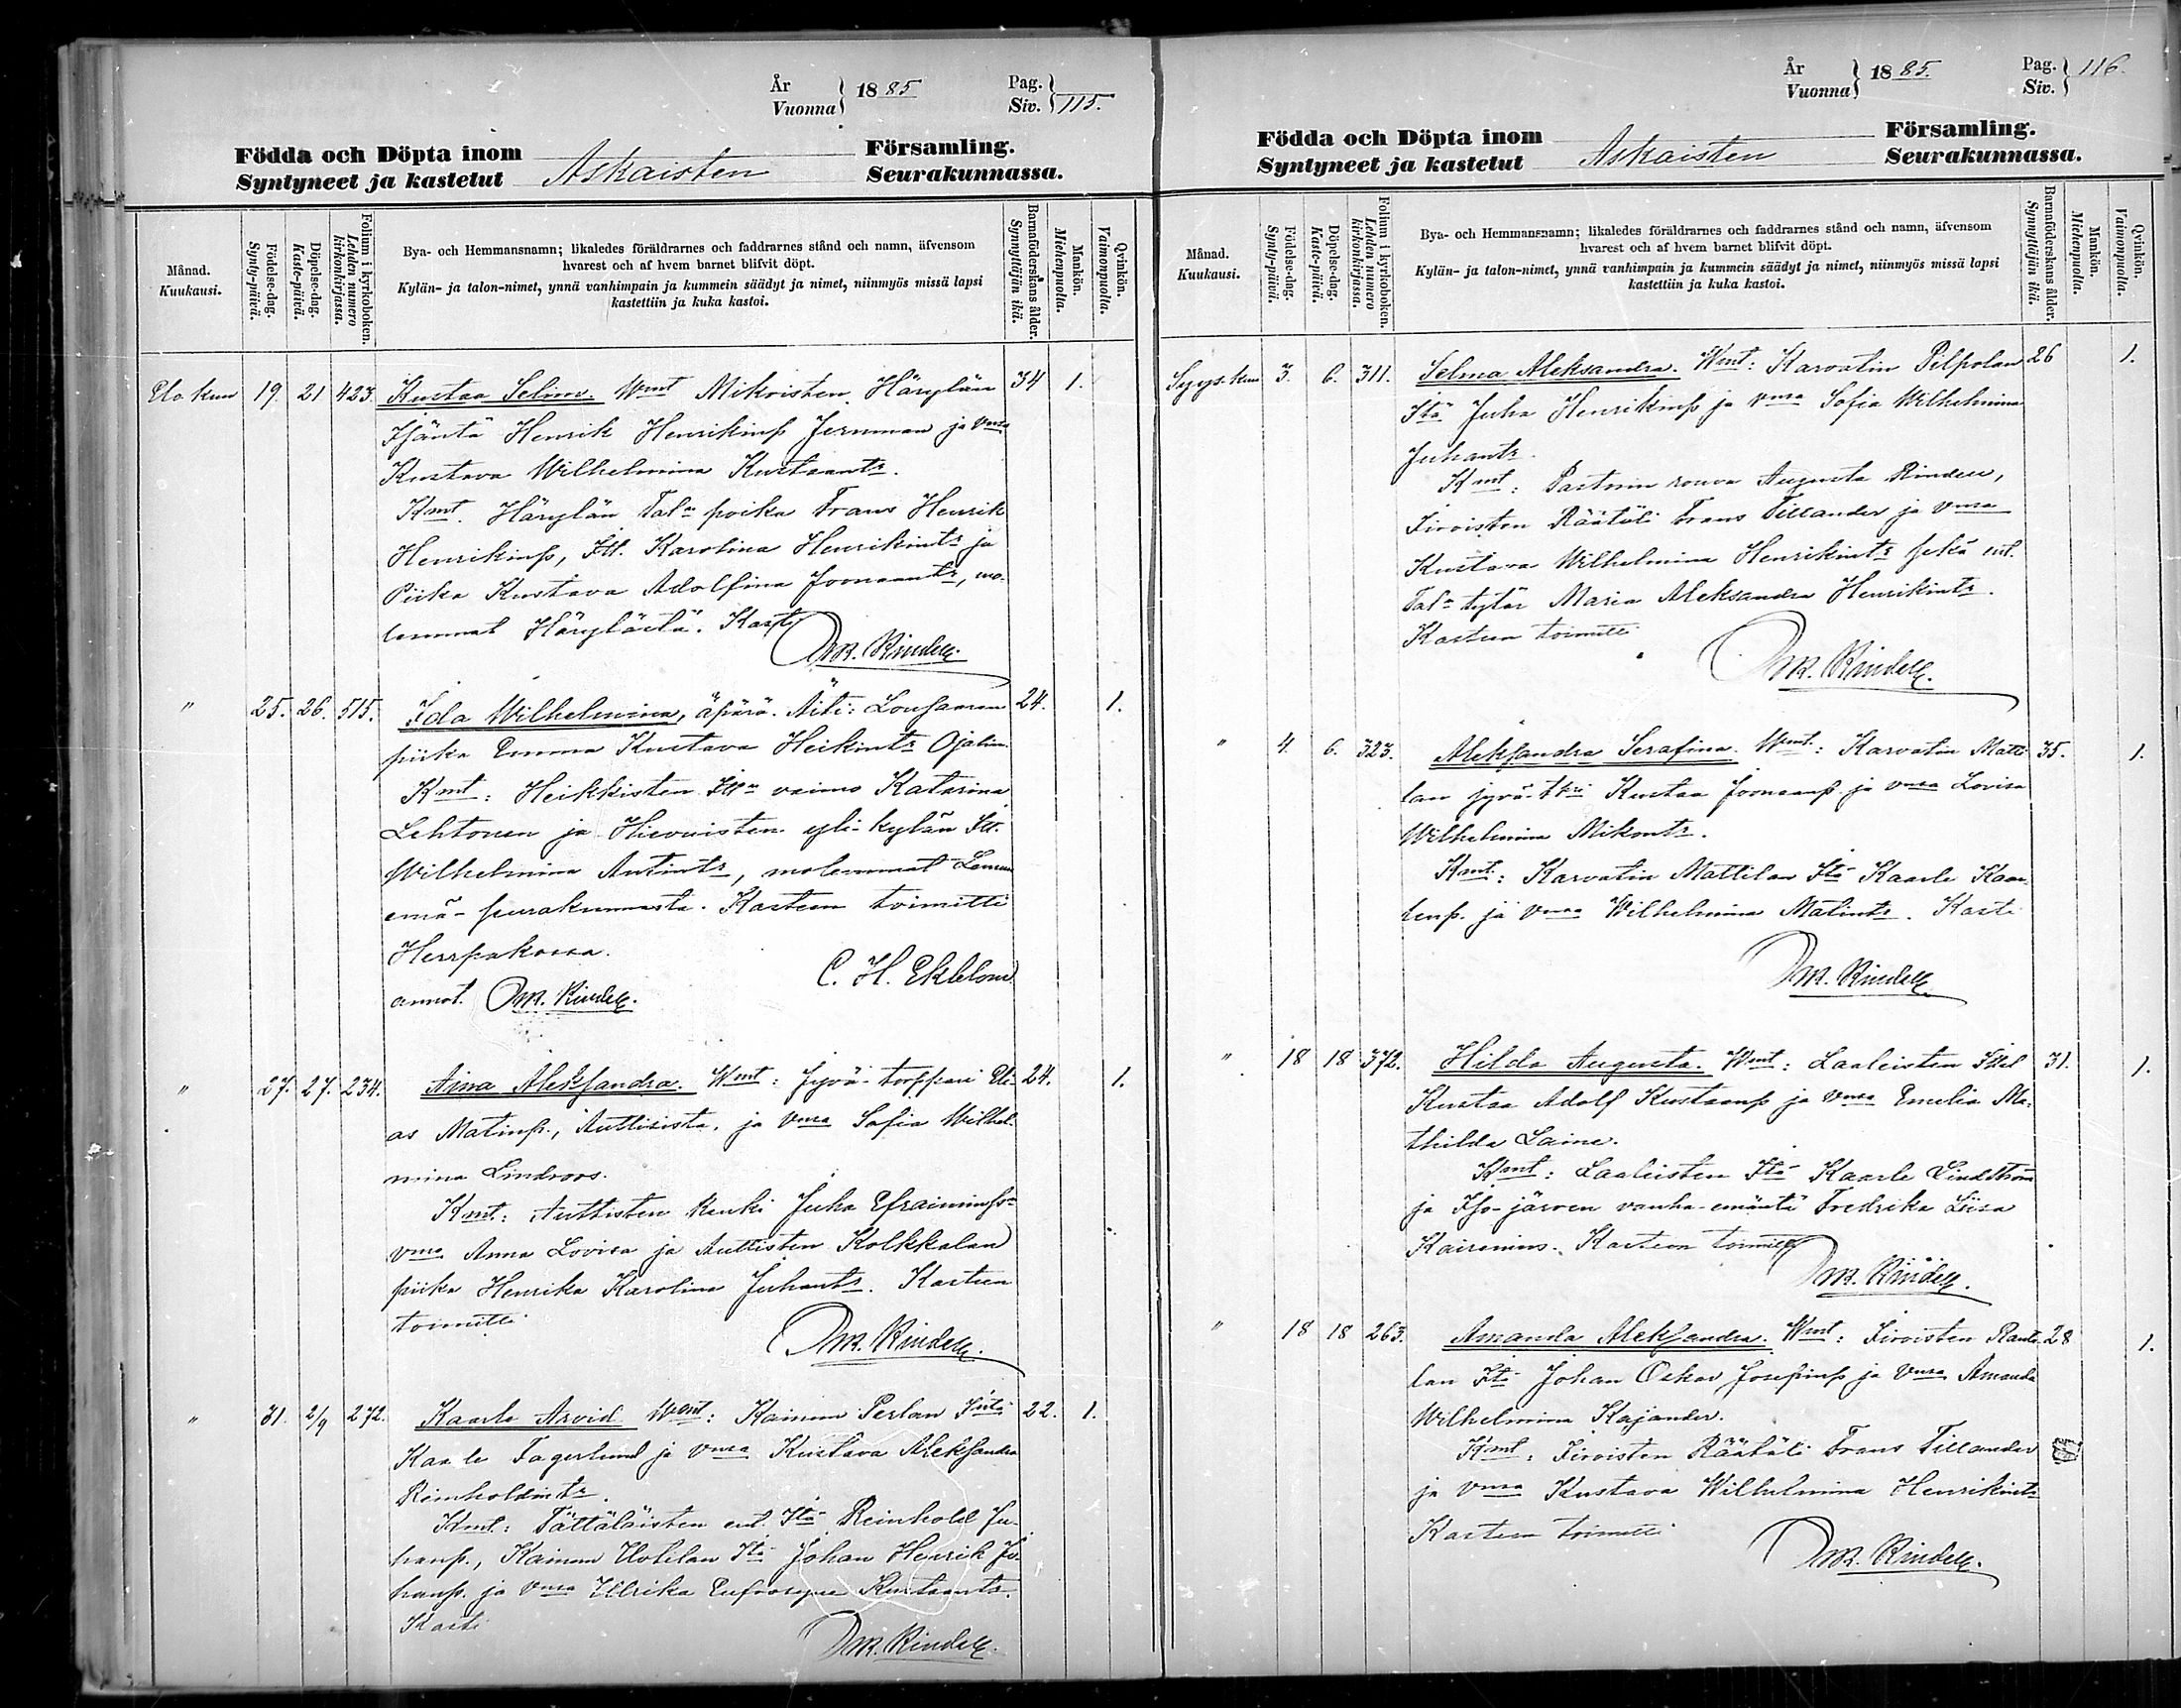 År
Vuonna } 1885
Pag.
Siv. } 115.
Födda och Döpta inom Askaisten Församling.
Syntyneet ja kastetut Seurakunnassa.
Månad.
Kuukausi.
Födelse-dag.
Synty-päivä.
Döpelse-dag.
Kaste-päivä.
Folium i kyrkoboken.
Lehden numero
kirkonkirjassa.
Bya- och Hemmansnamn; likaledes föräldrarnes och faddrarnes stånd och namn, äfvensom
hvarest och af hvem barnet blifvit döpt.
Kylän- ja talon-nimet, ynnä vanhimpain ja kummein säädyt ja nimet, niinmyös missä lapsi
kastettiin ja kuka kastoi.
Barnaföderskans ålder.
Synnyttäjän ikä.
Mankön.
Miehenpuolta.
Qvinkön.
Vaimonpuolta.
Elo kuu 19. 21 423. Kustaa Selim. Wmt Mikoisten Härylän 34 1.
Isäntä Henrik Henrikinp. Jernman ja vmsa
Kustava Wilhelmina Kustaantr.
Kmt. Härylän Taln poika Frans Henrik
Henrikinp, Itl. Karolina Henrikintr ja
Piika Kustava Adolfina Joonaantr, mo-
lemmat Härylästä. Kasti
Osk. Rindell.
" 25. 26. 515. Ida Wilhelmina, äpärä. Äiti: Lousaaren 24. 1.
piika Emma Kustava Heikintr Ojalin.
Kmt: Heikkisten Itln vaimo Katarina
Lehtonen ja Hievoisten yli-kylän Itl.
Wilhelmina Antintr, molemmat Lemun
emä-seurakunnasta. Kasteen toimitti
Herrpakossa.
C. H. Ekblom
annot. Osk. Rindell.
" 27. 27. 234. Aina Aleksandra. Wmt: Jyvä-torppari Eli- 24. 1.
as Matinp., Auttisista, ja vmsa Sofia Wilhel-
mina Lindroos.
Kmt: Auttisten Renki Juha Efraiminp.
vmsa Anna Lovisa ja Auttisten Kolkkalan
piika Henrika Karolina Juhantr. Kasteen
toimitti
Osk. Rindell.
" 31. 2/9 272. Kaarle Arvid Wmt: Kainun Perlan Isäntä 22. 1.
Kaarle Fagerlund ja vmsa Kustava Aleksandra
Reinholdintr.
Kmt: Tättäläisten ent. Itä Reinhold Ju-
hanp., Kainun Uotilan Itä Johan Henrik Ju-
hanp. ja vmsa Ulrika Eufrosyne Kustaantr.
Kasti
Osk. Rindell.
År
Vuonna } 1885.
Pag.
Siv. } 116.
Födda och Döpta inom Askaisten Församling.
Syntyneet ja kastetut Seurakunnassa.
Månad.
Kuukausi.
Födelse-dag.
Synty-päivä.
Döpelse-dag.
Kaste-päivä.
Folium i kyrkoboken.
Lehden numero
kirkonkirjassa.
Bya- och Hemmansnamn; likaledes föräldrarnes och faddrarnes stånd och namn, äfvensom
hvarest och af hvem barnet blifvit döpt.
Kylän- ja talon-nimet, ynnä vanhimpain ja kummein säädyt ja nimet, niinmyös missä lapsi
kastettiin ja kuka kastoi.
Barnaföderskans ålder.
Synnyttäjän ikä.
Mankön.
Miehenpuolta.
Qvinkön.
Vaimonpuolta.
Syys. kuu 3. 6. 311. Selma Aleksandra. Wmt: Karvatin Pilpolan 26 1.
Itä Juha Henrikinp ja vmsa Sofia Wilhelmina
Juhantr.
Kmt: Pastorin rouva Augusta Rindell,
Iivoisten Räätäli Frans Tillander ja vmsa
Kustava Wilhelmina Henrikintr sekä ent.
Taln tytär Maria Aleksandra Henrikintr.
Kasteen toimitti
Osk. Rindell.
" 4. 6. 323. Aleksandra Serafina. Wmt: Karvatin Matti- 35. 1.
lan jyvä-tkri Kustaa Joonaanp ja vmsa Lovisa
Wilhelmina Mikontr.
Kmt: Karvatin Mattilan Itä Kaarle Kaar-
lenp. ja vmsa Wilhelmina Matintr. Kasti
Osk. Rindell
" 18 18 372. Hilda Augusta. Wmt: Laaleisten Itsel 31. 1.
Kustaa Adolf Kustaanp ja vmsa Emelia Ma-
thilda Laine.
Kmt: Laaleisten Itä Kaarle Lindström
ja Iso-järven vanha-emäntä Fredrika Liisa
Kasteen toimitti
Osk. Rindell.
" 18 18 263. Amanda Aleksandra. Wmt: Iivoisten Ranta- 28 1.
lan Itä Johan Oskar Josefinp ja vmsa Amanda
Wilhelmina Kajander.
Kmt: Iivoisten Räätäli Frans Tillander
ja vmsa Kustava Wilhelmina Henrikintr
Kasteen toimitti
Osk. Rindell.